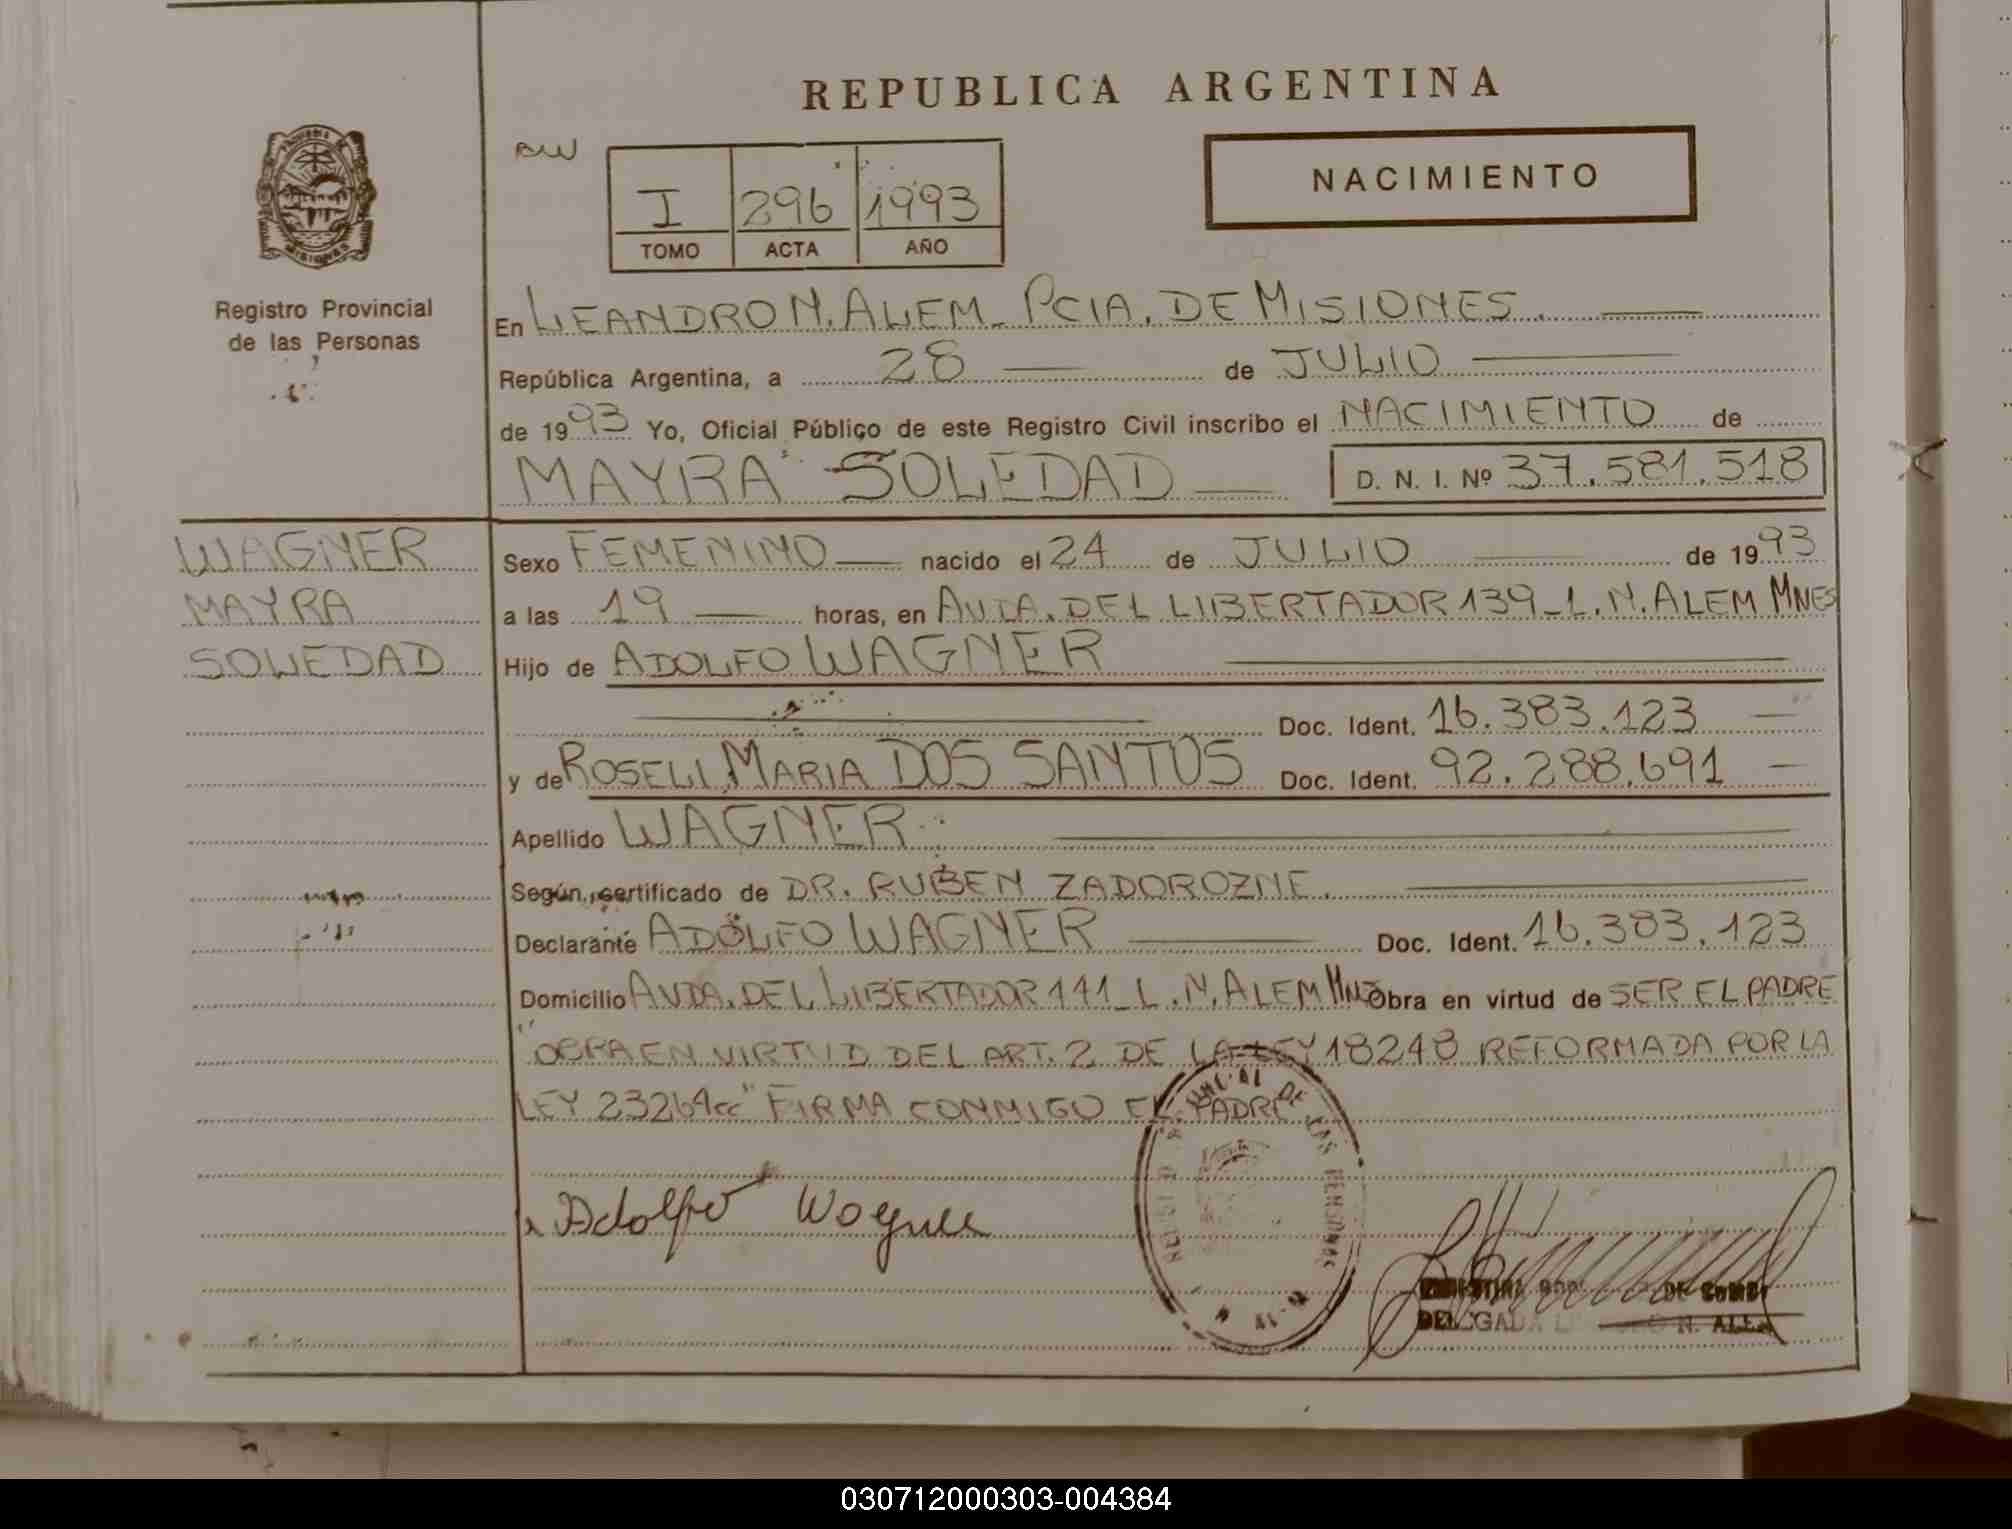 REPUBLICA ARGENTINA
NACIMIENTO
I 296 1993
TOMO ACTA AÑO
Registro Provincial
de las Personas
En LEANDRO N. ALEM - PCIA. DE MISIONES.
República Argentina, a 28 de JULIO
de 1993 Yo, Oficial Público de este Registro Civil inscribo el NACIMIENTO de
MAYRA SOLEDAD D. N. I. Nº 37.581.518
WAGNER
MAYRA
SOLEDAD
Sexo FEMENINO nacido el 24 de JULIO de 1993
a las 19 horas, en AVDA. DEL LIBERTADOR 139 - L. N. ALEM MNES
Hijo de ADOLFO WAGNER
Doc. Ident. 16.383.123
y de ROSELI MARIA DOS SANTOS Doc. Ident. 92.288.691
Apellido WAGNER
Según certificado de DR. RUBEN ZADOROZNE.
Declarante ADOLFO WAGNER Doc. Ident. 16.383.123
Domicilio AVDA. DEL LIBERTADOR 141 - L. N. ALEM MNES Obra en virtud de SER EL PADRE
"OBRA EN VIRTUD DEL ART. 2 DE LA LEY 18248 REFORMADA POR LA
LEY 23264 cc" FIRMA CONMIGO EL PADRE
Adolfo Wagner
DE LAS PERSONAS
DELEGADA N. ALEM
030712000303-004384